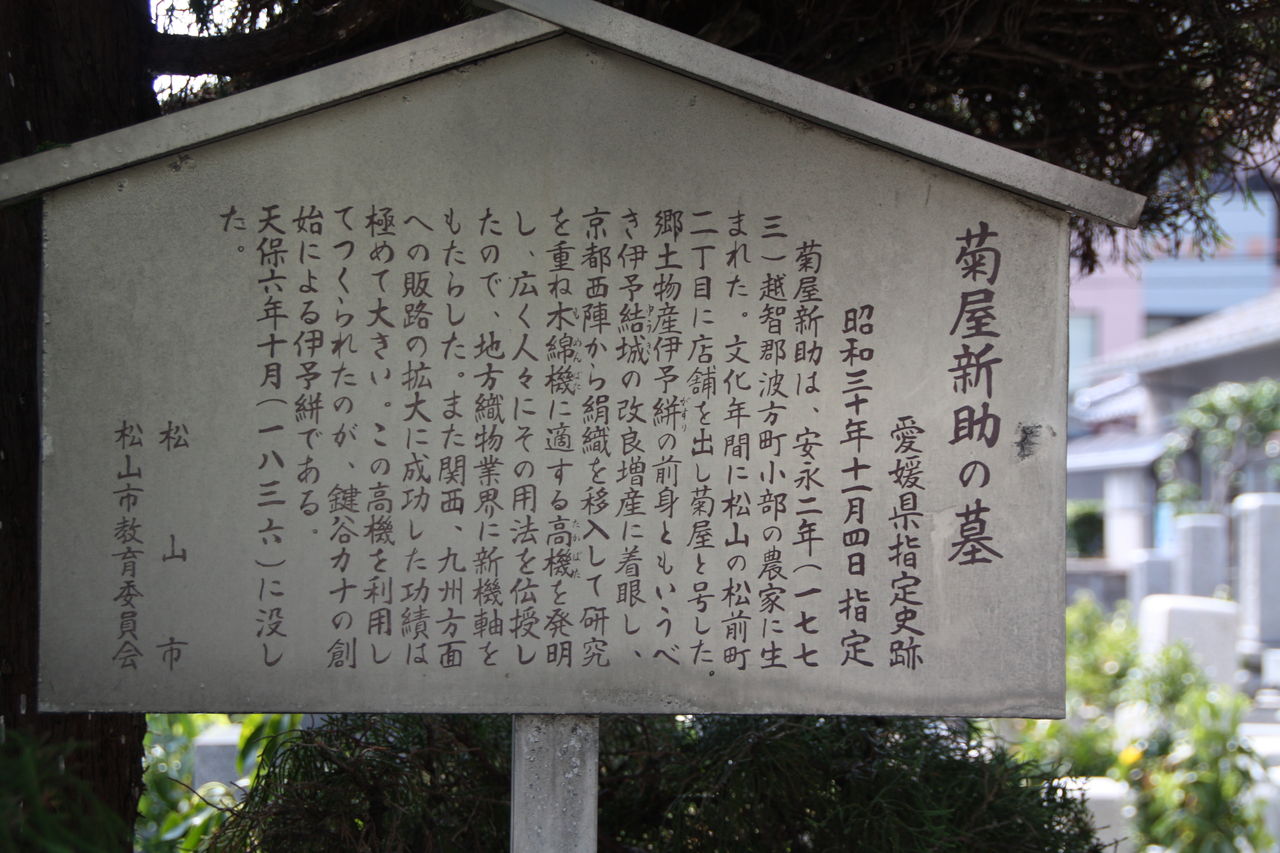 菊屋新助の墓
愛媛県指定史跡
昭和三十年十一月四日指定
菊屋新助は、安永二年（一七七
三）越智郡波方町小部の農家に生
まれた。文化年間に松山の松前町
二丁目に店舗を出し菊屋と号した。
郷土物産伊予絣の前身ともいうべ
がすり
き伊予結城の改良増産に着眼し、
ゆうき
京都西陣から絹織を移入して研究
を重ね木綿機に適する高機を発明
もめんばた
たかばた
し、広く人々にその用法を伝授し
たので、地方織物業界に新機軸を
もたらした。また関西、九州方面
への販路の拡大に成功した功績は
極めて大きい。この高機を利用し
てつくられたのが、鍵谷カナの創
始による伊予絣である。
天保六年十月（一八三六）に没し
た。
松山市
松山市教育委員会